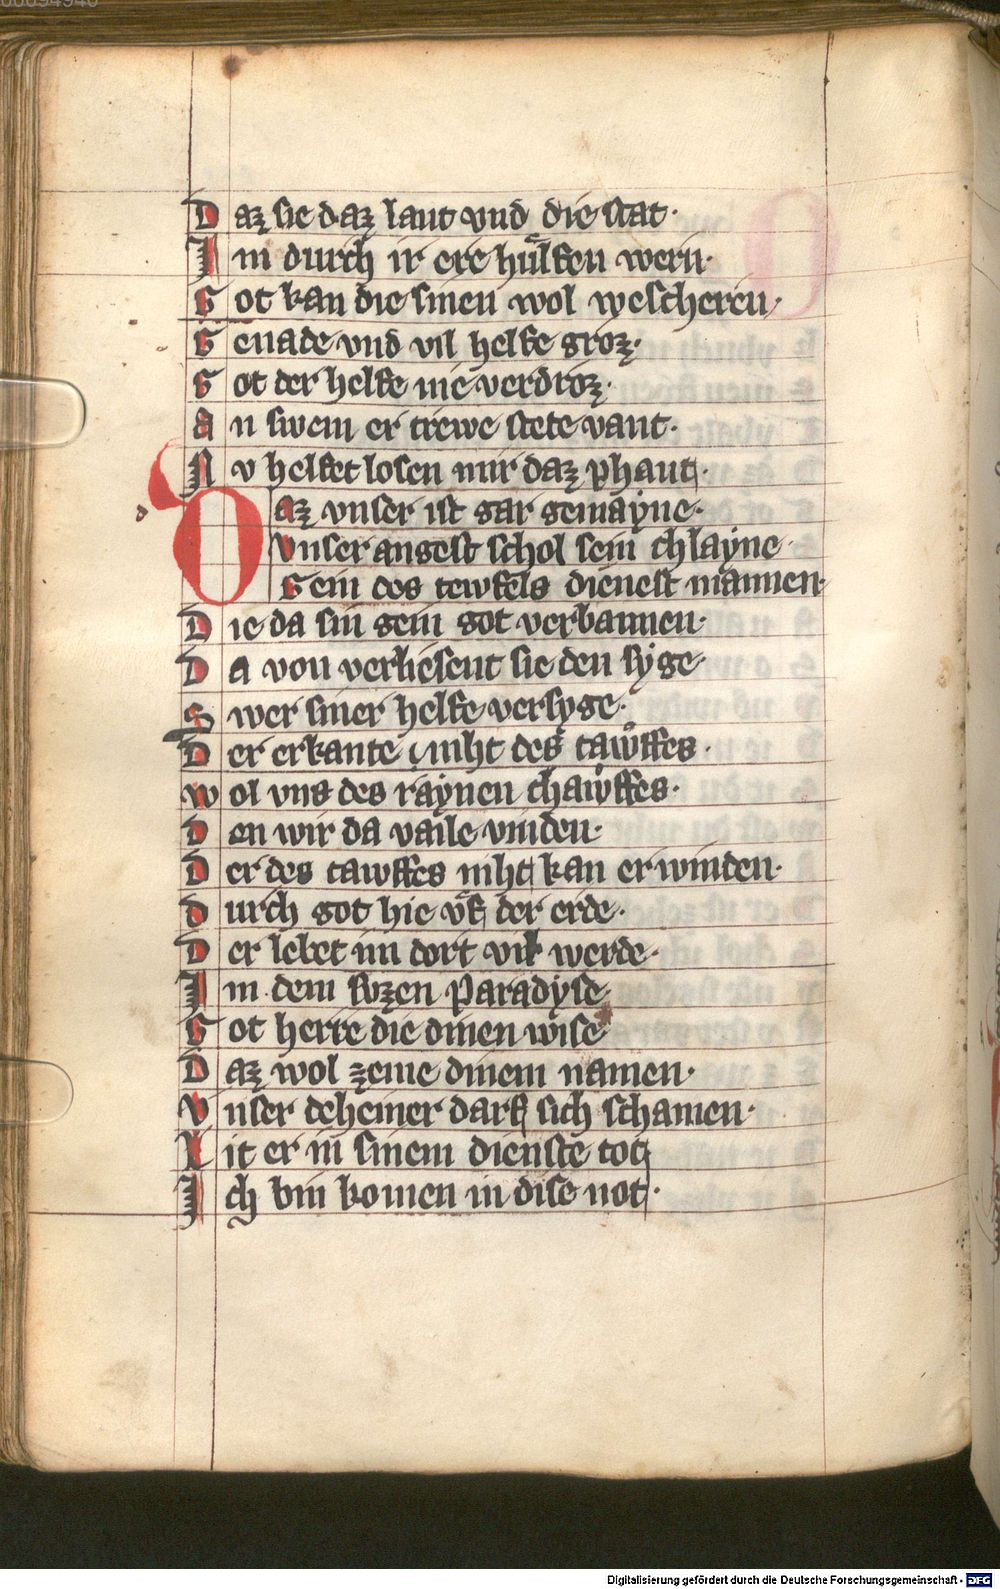 00094940
Daz sie daz lant vnd die stat·
Im durch ir ere hulfen wern·
Got kan die sinen wol wescheren·
Genade vnd vil helfe groz·
Got der helfe nie verdroz·
An swem er trewe stete vant·
Nv helfet losen mir daz phant·
Daz vnser ist gar gemayne·
Vnser angest schol sein chlayne·
Gein des tewfels dienest mannen·
Die da sin gein got verbannen·
Da von verliesent sie den syge·
Swer siner helfe versyge·
Der erkante niht des tawffes·
wol vns des raynen chawffes·
den wir da vaile vinden·
Der des tawffes niht kan erwinden·
durch got hie vf der erde·
Der lebet im dort vil werde·
In dem svzen paradyse
Got herre die dinen wise
Daz wol zeme dinem namen·
Vnser deheiner darf sich schamen·
Lit er in sinem dienste tot
Ich bin komen in dise not·
Digitalisierung gefördert durch die Deutsche Forschungsgemeinschaft - DFG